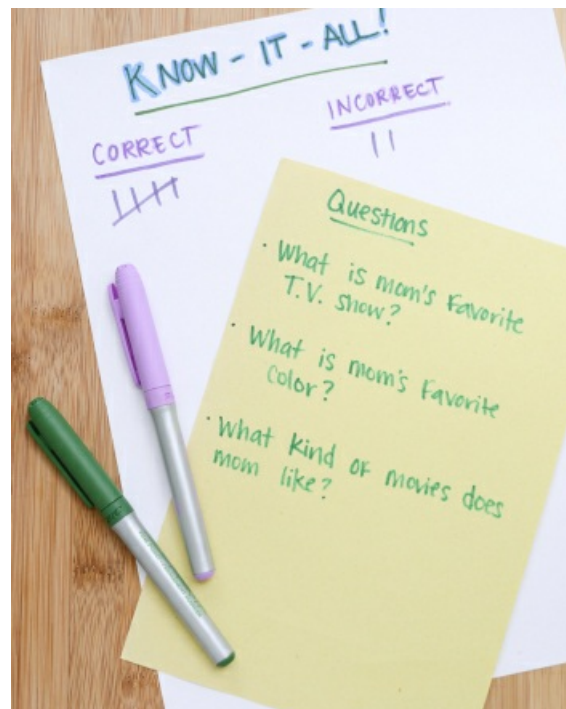 KNOW - IT - ALL!
CORRECT
INCORRECT
Questions
· What is mom's Favorite
T.V. show?
· What is mom's Favorite
Color?
· What kind of movies does
mom like?